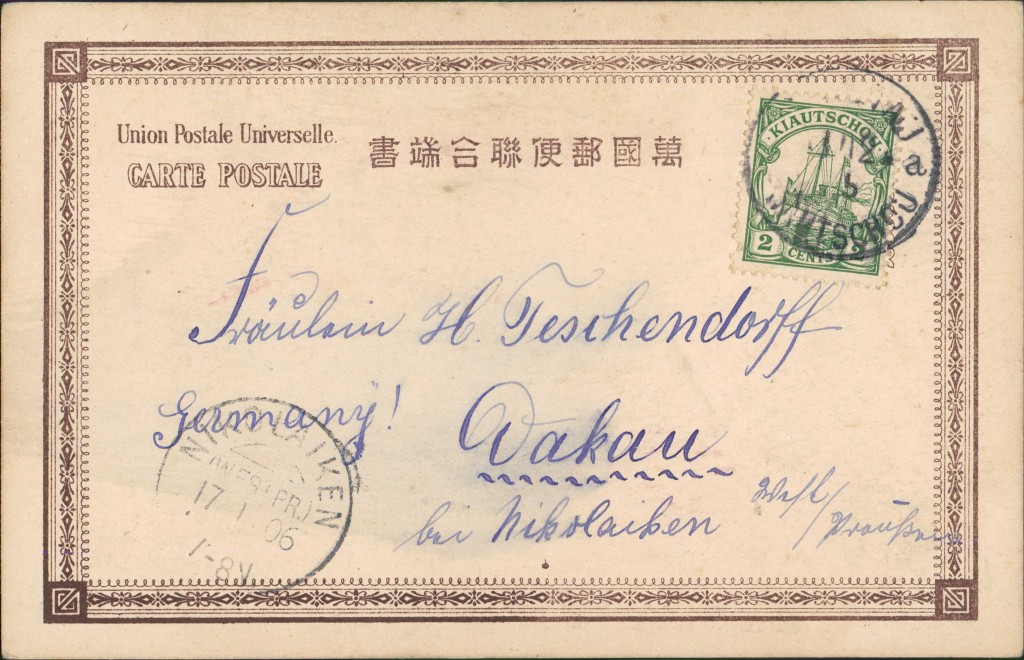 Union Postale Universelle.
CARTE POSTALE
書端合聯便郵國萬
KIAUTSCHOU
2 CENTS 2
a
5
KIAUTSCHOU
Fräulein H. Teschendorff
Germany!
Dakau
bei Nikolaiken
West/
Preußen
NIKOLAIKEN
(WESTPR.)
17 1 06
7-8V.